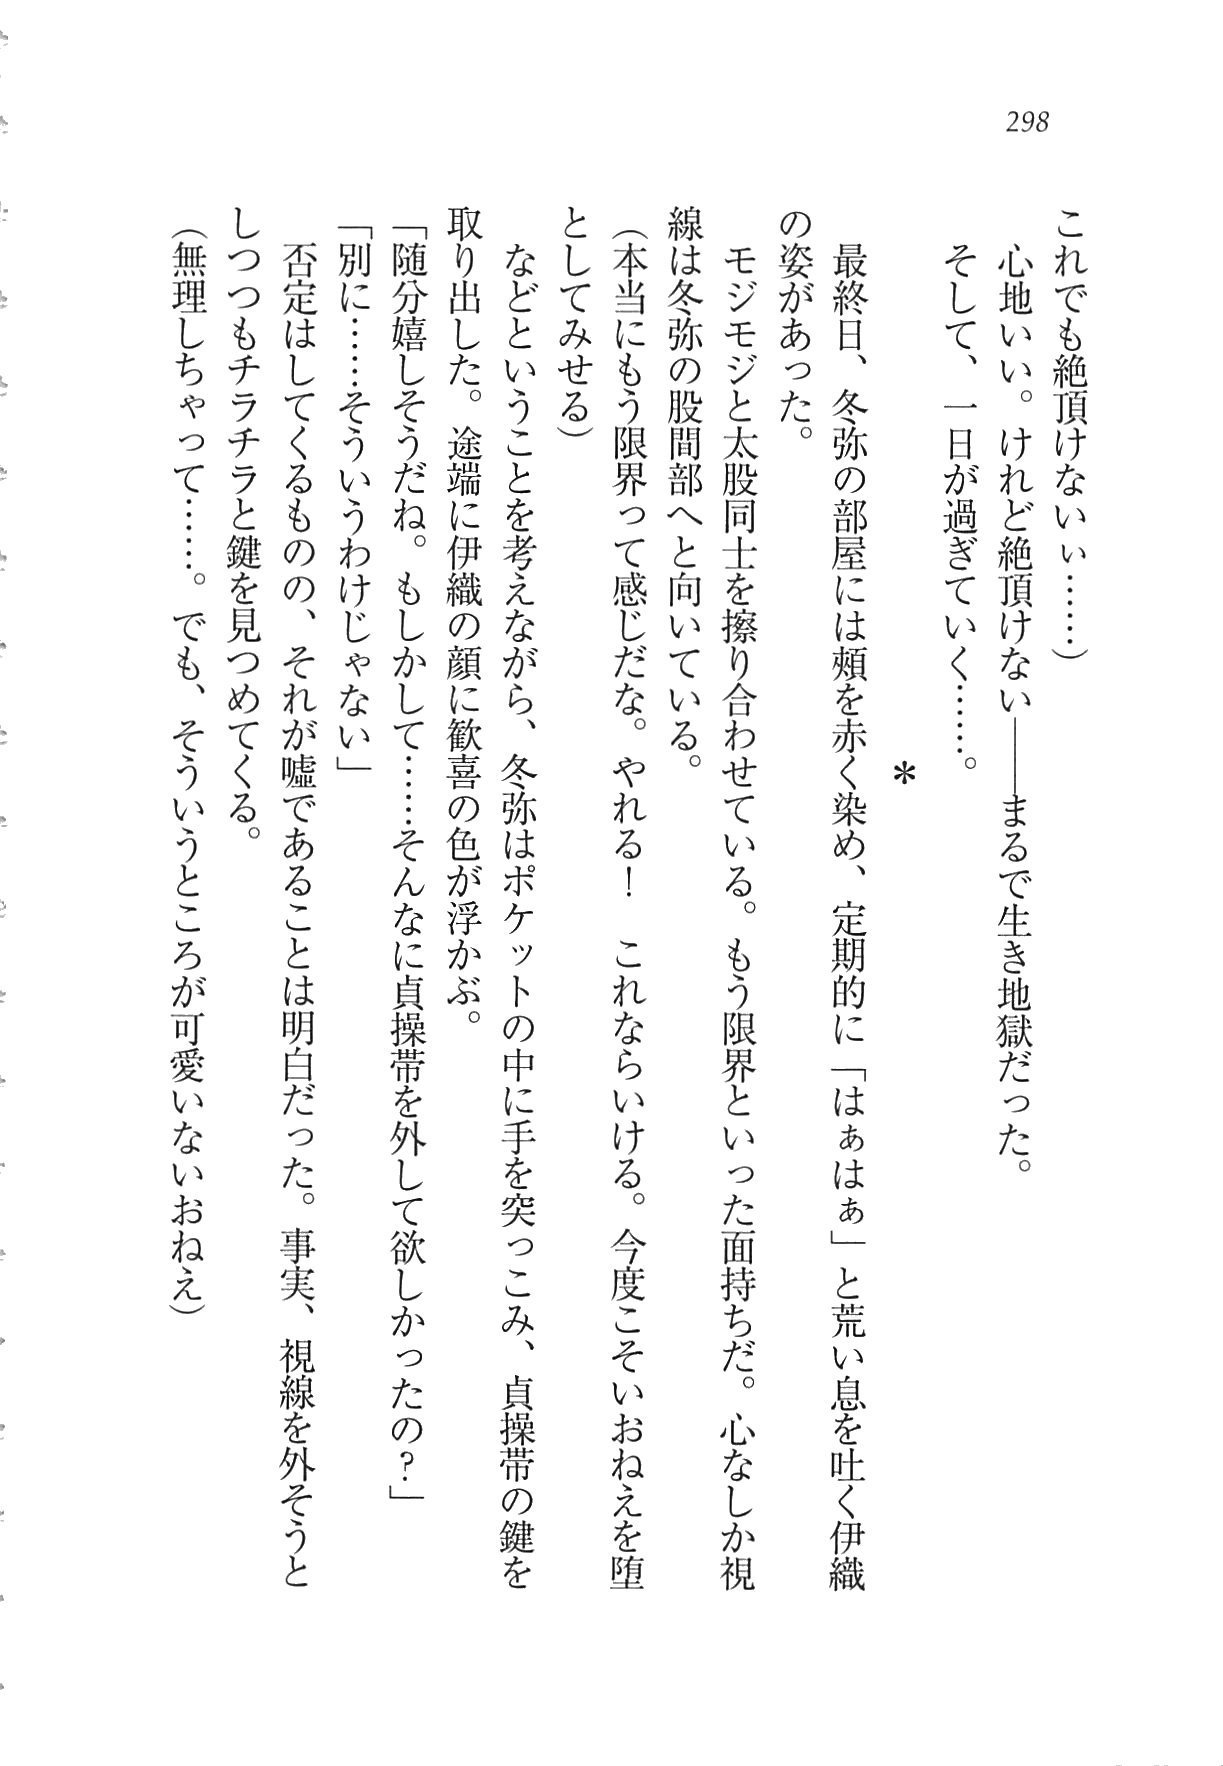 298
これでも絶頂けないぃ……)
心地いい。けれど絶頂けない――まるで生き地獄だった。
そして、一日が過ぎていく……。
*
最終日、冬弥の部屋には頬を赤く染め、定期的に「はぁはぁ」と荒い息を吐く伊織
の姿があった。
モジモジと太股同士を擦り合わせている。もう限界といった面持ちだ。心なしか視
線は冬弥の股間部へと向いている。
(本当にもう限界って感じだな。やれる!　これならいける。今度こそいおねえを堕
としてみせる)
などということを考えながら、冬弥はポケットの中に手を突っこみ、貞操帯の鍵を
取り出した。途端に伊織の顔に歓喜の色が浮かぶ。
「随分嬉しそうだね。もしかして……そんなに貞操帯を外して欲しかったの?」
「別に……そういうわけじゃない」
否定はしてくるものの、それが嘘であることは明白だった。事実、視線を外そうと
しつつもチラチラと鍵を見つめてくる。
(無理しちゃって……。でも、そういうところが可愛いないおねえ)